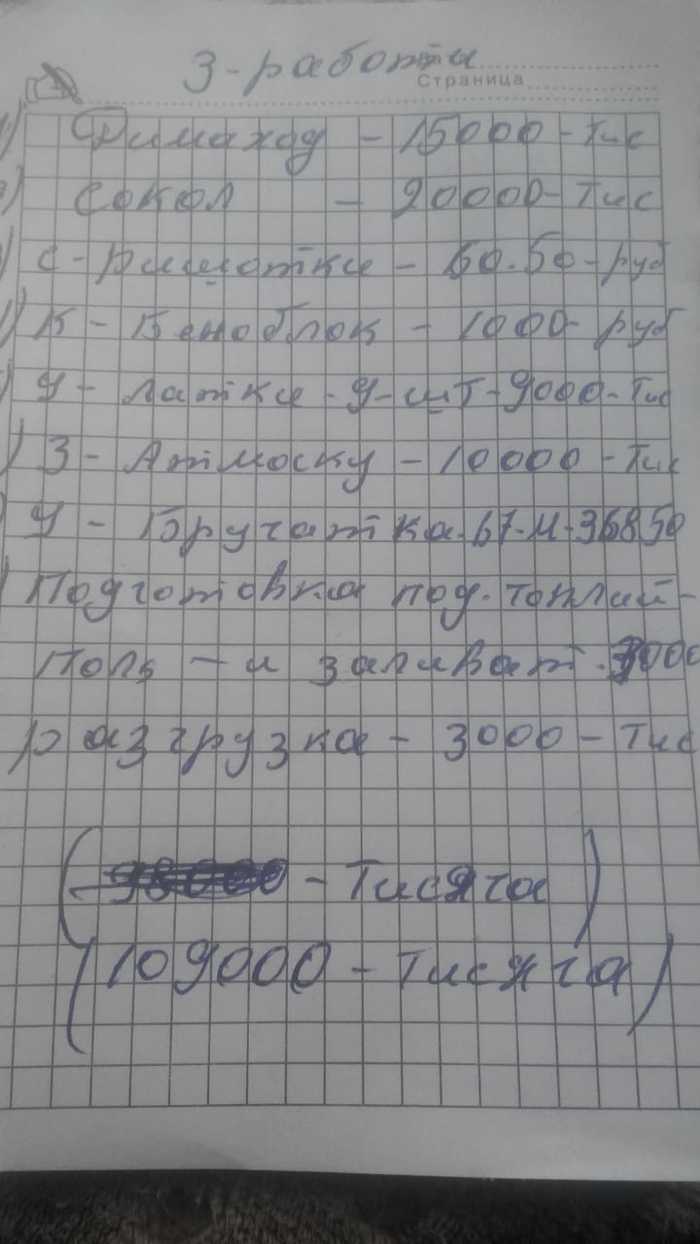 3-работы
Страница
Димаход - 15000-Тис
Сокол - 20000-Тис
С-римотки - 60.50-руб
К - Беноблок - 1000-руб
У- латки-9-шт-9000-Тис
3- Атмоску - 10000 - Тис
У- Бручатка.67-м-36850
Подготовка под. топлий-
Поль - и заливат.
разгрузка - 3000 - Тис
- Тисяча
(109000 - Тисяча)